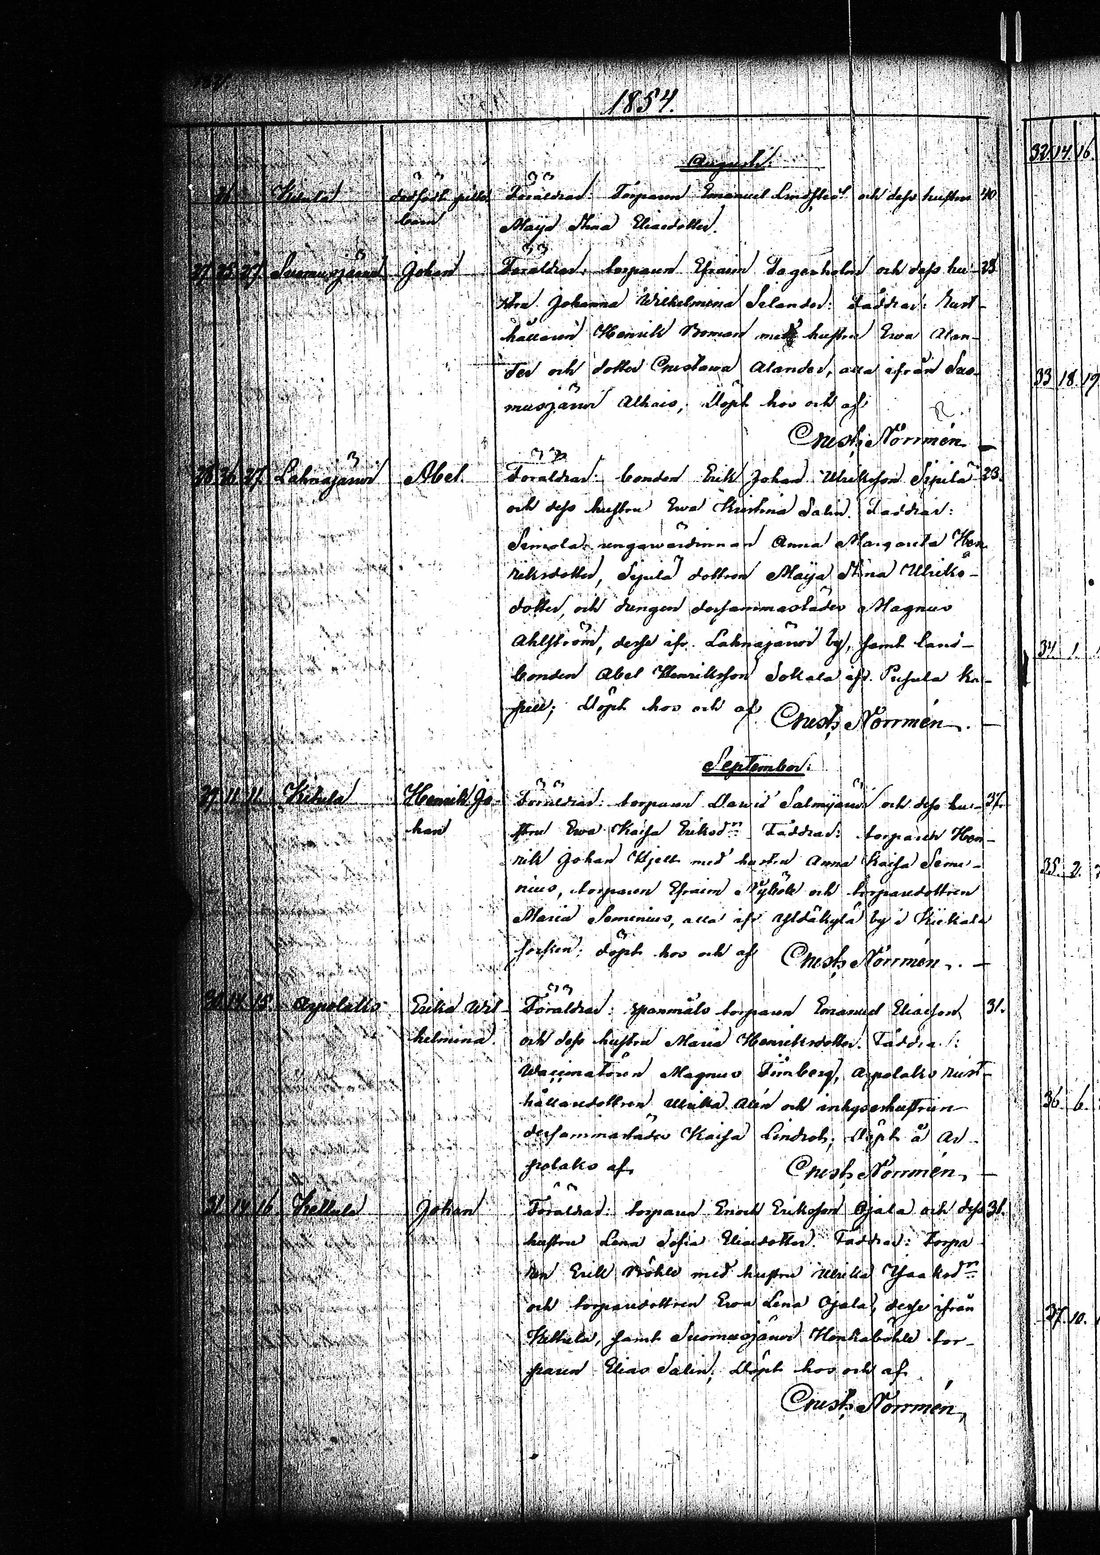 1854.
Augusti.
26. Kitula dödfödt gosse barn Föräldrar: Torparen Emanuel Lindström och dess hustru 40.
Maja Stina Eliaedotter.
27. 25. 27. Suomusjärvi Johan Föräldrar: torparen Efraim Lagerholm och dess hu- 23.
stru Johanna Wilhelmina Selander. Faddrar: Rust-
hållaren Henrik Boman med hustru Ewa Alan-
der och dotter Gustawa Alander, alla ifrån Suo-
musjärvi Alhais; Döpt hos och af
Gust. Norrmén
28. 26. 27. Lahnajärvi Abel. Föräldrar: bonden Erik Johan Ulriksson Sipilä 23.
och dess hustru Ewa Kristina Salin. Faddrar:
Anna Margareta Hen-
riksdotter, Sipilä dottren Maija Stina Ulriks-
dotter, och drengen dersammastädes Magnus
Ahlström, desse ifr. Lahnajärvi by, samt land-
bonden Abel Henriksson Sokala ifr. Pusula ka-
pell; Döpt hos och af Gust. Norrmén.
September.
29. 11. 11. Kitula Henrik Jo- Föräldrar: torparen David Salmijärvi och dess hu- 37.
han stru Ewa Kaisa Eriksdr. Faddrar: torparen Hen-
rik Johan Kjell med hustru Anna Kaisa Seme-
nius, torparen Efraim Nyböle och torparedottren
Maria Semenius, alla ifr. Yldäkylä by i Kiskala
socken; döpt hos och af Gust. Norrmén.
30. 14. 15. Arpolatks Erika Wil- Föräldrar: spanmåls torparen Emanuel Eliasson 31.
helmina. och dess hustru Maria Henriksdotter. Faddra:
Waccinatören Magnus Timberg, Arpolaks rust-
hållaredottren Ulrika Alén och inhyseshustrun
dersammastädes Kaisa Lindroth; Döpt å Ar-
polaks af Gust. Norrmén,
31. 14. 16. Kettula Johan Föräldrar: torparen Enoch Eriksson Ojala och dess 31.
hustru Lena Sofia Eliaedotter. Faddrar: Torpa-
ren Erik Böhle med hustru Ulrika Isaksdr
och torparedottren Ewa Lena Ojala, desse ifrån
Kettula, samt Suomusjärvi Honkaböhle tor-
paren Elias Salin; Döpt hos och af
Gust. Norrmén,
32. 14. 16.
33. 18. 19.
34. 1.
35. 2.
36. 6.
37. 10.